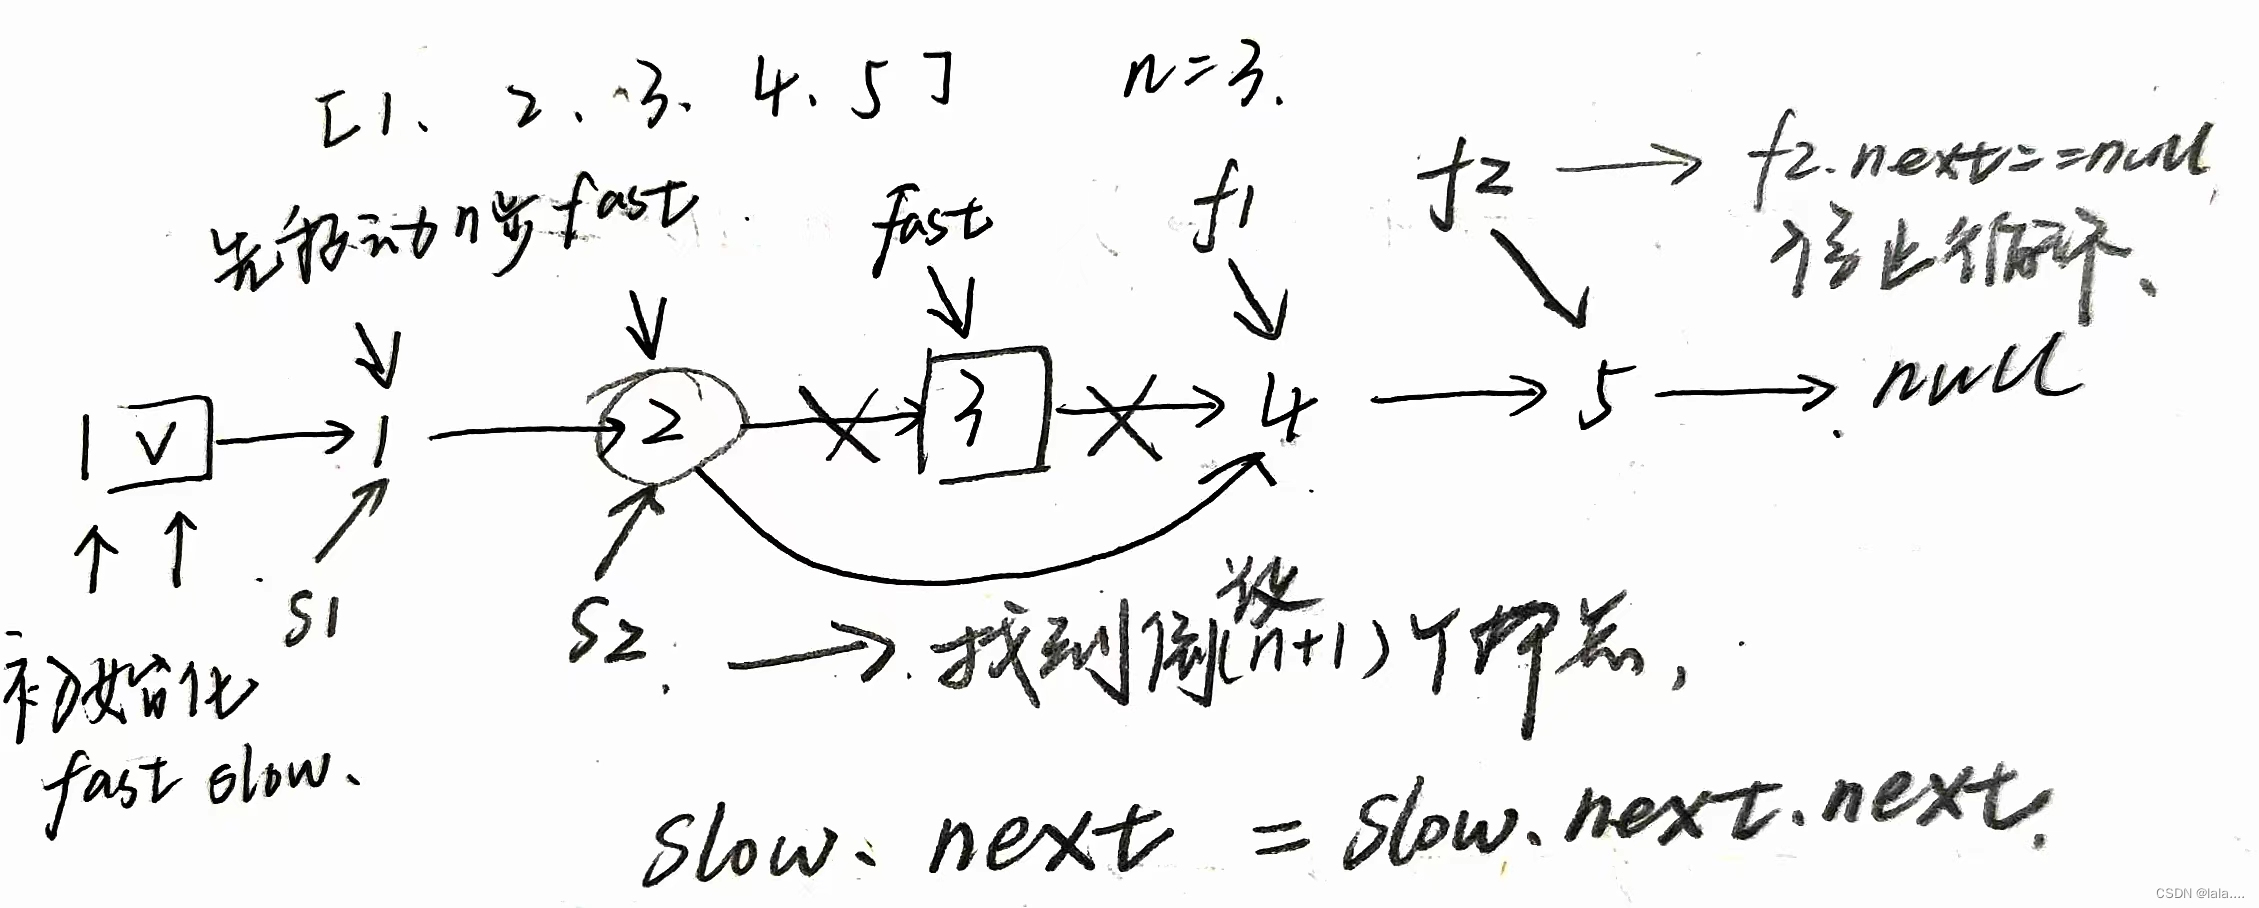 [1、2、3、4、5] n=3.
先移动n步fast
fast
f1
f2
f2.next==null
停止循环、
V
1
2
3
4
5
null
S1
S2
找到倒数(n+1)个节点,
初始化
fast slow、
slow、next = slow、next、next、
CSDN @lala....